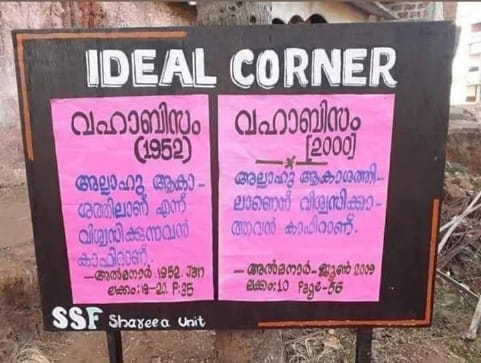 IDEAL CORNER
വഹാബിസം
(1952)
അല്ലാഹു ആകാ-
ശത്തിലാണ് എന്ന്
വിശ്വസിക്കുന്നവൻ
കാഫിറാണ്.
-അൽമനാർ.1952. Jan
ലക്കം:19-20 P:35
വഹാബിസം
[2000]
അല്ലാഹു ആകാശത്തി-
ലാണെന്ന് വിശ്വസിക്കാ-
ത്തവൻ കാഫിറാണ്.
-അൽമനാർ-ജൂൺ 2009
ലക്കം:10 Page-56
SSF Shareea Unit